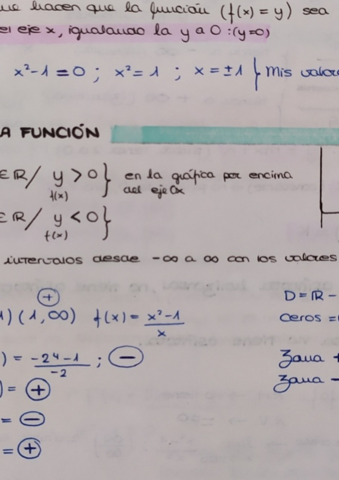 hacen que la función (f(x) = y) sea
el eje x, igualando la y a 0 : (y=0)
x²-1 = 0 ; x² = 1 ; x = ±1 } Mis valore
A FUNCIÓN
ER / y > 0 } en la gráfica por encima
f(x) del eje Ox
ER / y < 0 }
f(x)
intervalos desde -∞ a ∞ con los valores
+
) (1, ∞) f(x) = x²-1 / x
D = R -
ceros =
) = -2⁴-1 / -2 ; -
) = +
= -
= +
Zona +
Zona -